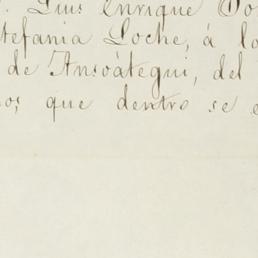 Luis Enrique
tefania Loche, á lo
de Ansoátegui, del
os, que dentro se e